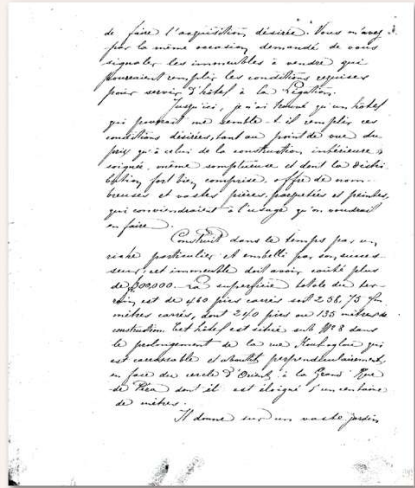 de faire l'acquisition désirée. Vous m'avez
par la même occasion demandé de vous
signaler les immeubles à vendre qui
pourraient remplir les conditions requises
pour servir d'hôtel à la Légation.
Jusqu'ici, je n'ai trouvé qu'un hôtel
qui pourrait me semble-t-il remplir ces
conditions désirées, tant au point de vue du
prix qu'à celui de la construction intérieure
soignée, même somptueuse et dont la distri
bution fort bien comprise, offre de nom-
breuses et vastes pièces, parquetées et peintes,
qui conviendraient à l'usage qu'on voudrait
en faire.
Construit dans le temps par un
riche particulier et embelli par son succes-
seur, cet immeuble doit avoir coûté plus
de 000.000. La superficie totale du ter-
rain, est de 460 pics carrés soit 258,75
mètres carrés, dont 240 pics ou 135 mètres de
construction. Cet hôtel est situé sub Nº 8 dans
le prolongement de la rue
est carrossable et aboutit perpendiculairement,
en face du cercle d'Orient, à la Grand' Rue
de Péra dont il est éloigné d'une centaine
de mètres.
Il donne sur un vaste jardin